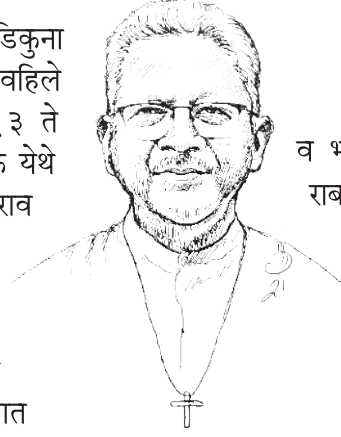 डिकुना
वहिले
३ ते
येथे
राव
ात
व भ
राब